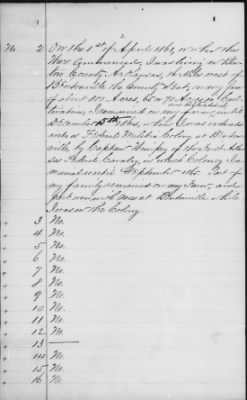 2
No 2 On the 1st of April 1861, or when the
War Commenced, I was living in Ben
ton County, Arkansas, miles west of
Bentonville the County Seat, on my farm
of about 100 Acres, 65 or 70 Acres in Culti
vation, I remained on my farm until
December 15th 1864, when I was ordered
into a Federal Militia Colony at Benton
ville by Captain of the 1st Arkan
sas Federal Cavalry, in which Colony I re
mained until September 1865. Part of
my family remained on my farm, and
part were with me at Bentonville while
I was in the Colony
" 3 No.
" 4 No.
" 5 No.
" 6 No.
" 7 No.
" 8 No.
" 9 No.
" 10 No.
" 11 No.
" 12 No.
" 13 —
" 14 No.
" 15 No.
" 16 No.